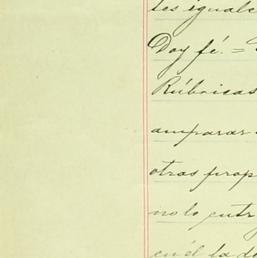 les iguales
Doy fé. =
Rúbricas
amparar
otras prop
no lo entr
en él lado